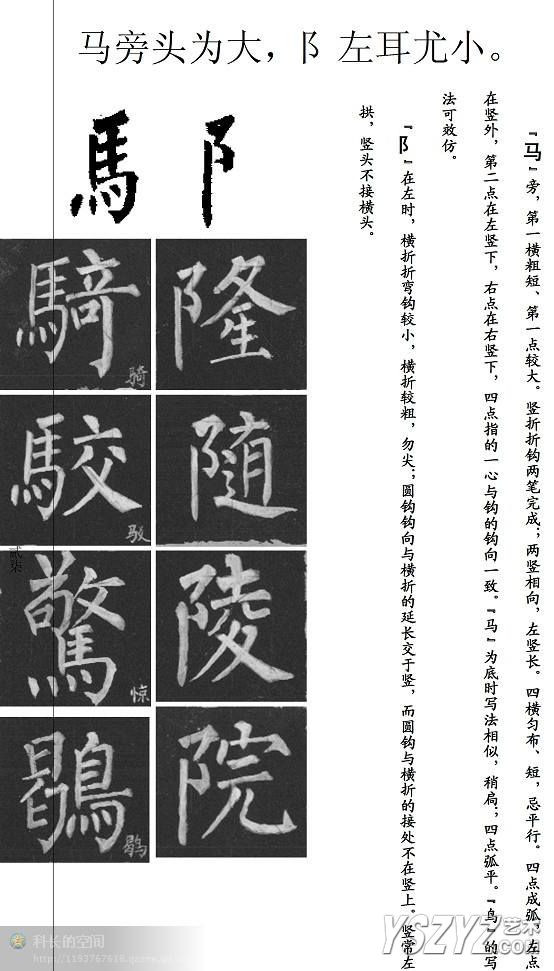 马旁头为大，阝左耳尤小。
『马』旁，第一横粗短、第一点较大。竖折折钩两笔完成；两竖相向，左竖长。四横匀布、短，忌平行。四点成弧，左点
在竖外，第二点在左竖下，右点在右竖下，四点指的一心与钩的钩向一致。『马』为底时写法相似，稍扁；四点弧平。『鸟』的写
法可效仿。
『阝』在左时，横折折弯钩较小，横折较粗，勿尖；圆钩钩向与横折的延长交于竖，而圆钩与横折的接处不在竖上。竖常左
拱，竖头不接横头。
阝
隆
随
陵
院
馬
騎
骑
駮
驳
驚
惊
鶡
鹖
贰柒
科长的空间
YSZYZ艺术